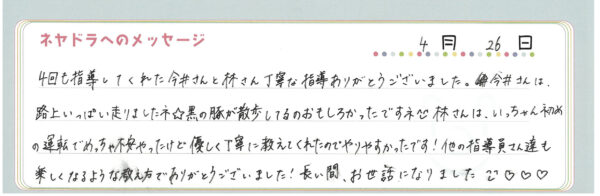 ネヤドラへのメッセージ
4月 26日
4回も指導してくれた今井さんと林さん丁寧な指導ありがとうございました。今井さんは、
路上いっぱい走りましたネ☆黒の豚が散歩してるのおもしろかったですネ 林さんは、いっちゃん初め
の運転でめっちゃ不安やったけど優しく丁寧に教えてくれたのでやりやすかったです!他の指導員さん達も
楽しくなるような教え方でありがとうございました!長い間、お世話になりました ♡♡♡